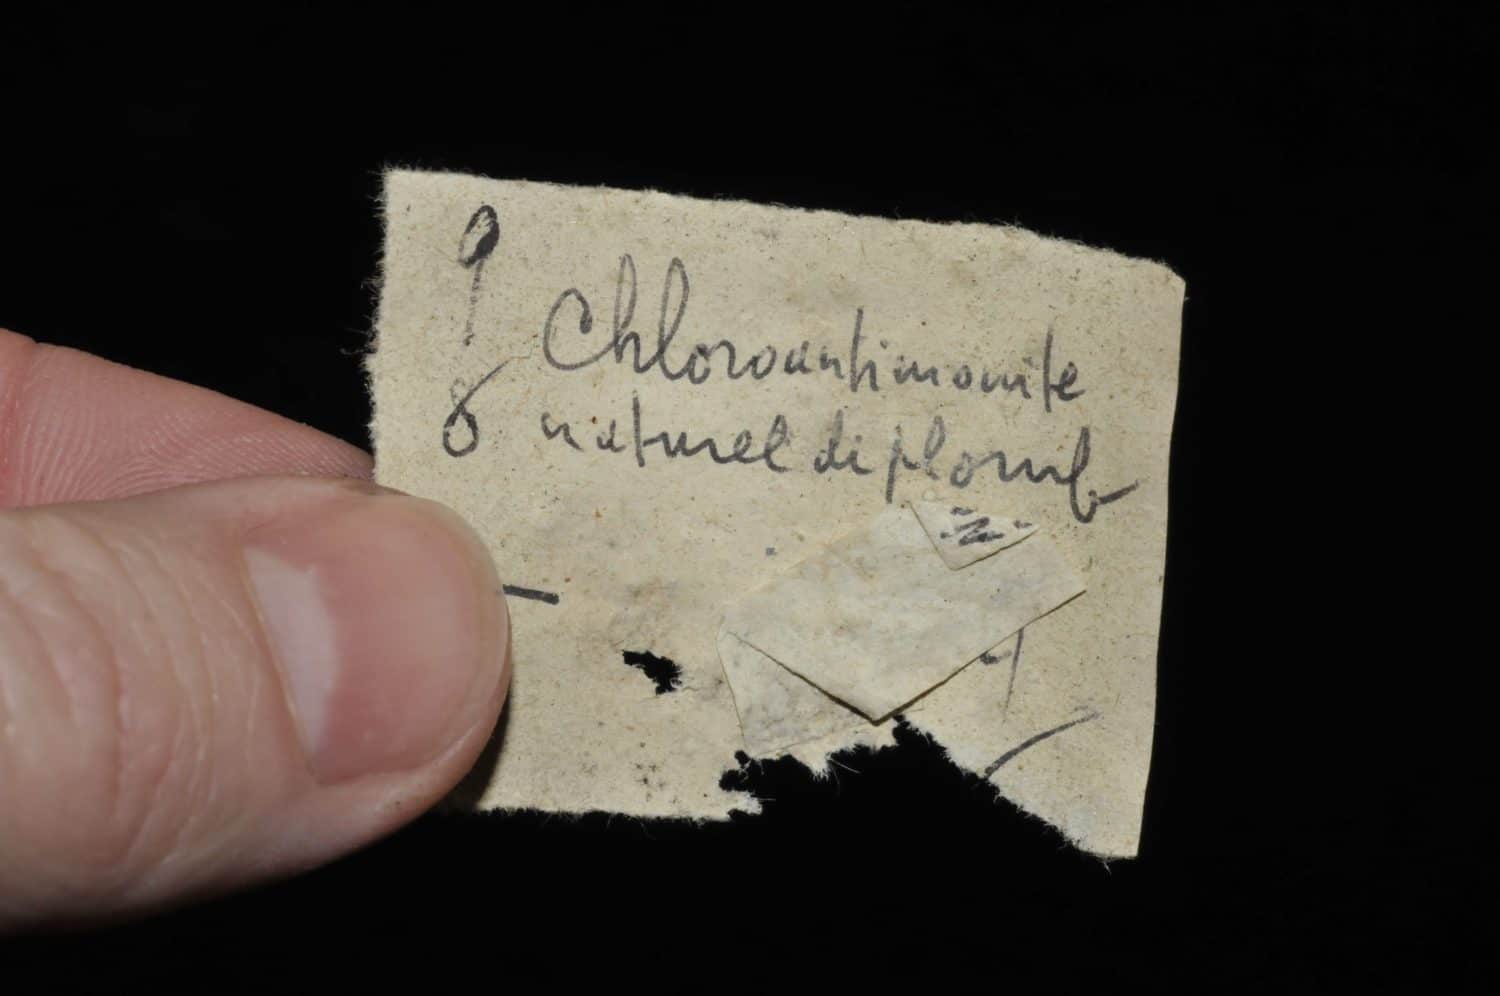 9
Chloroantimonite
8 naturel di plomb